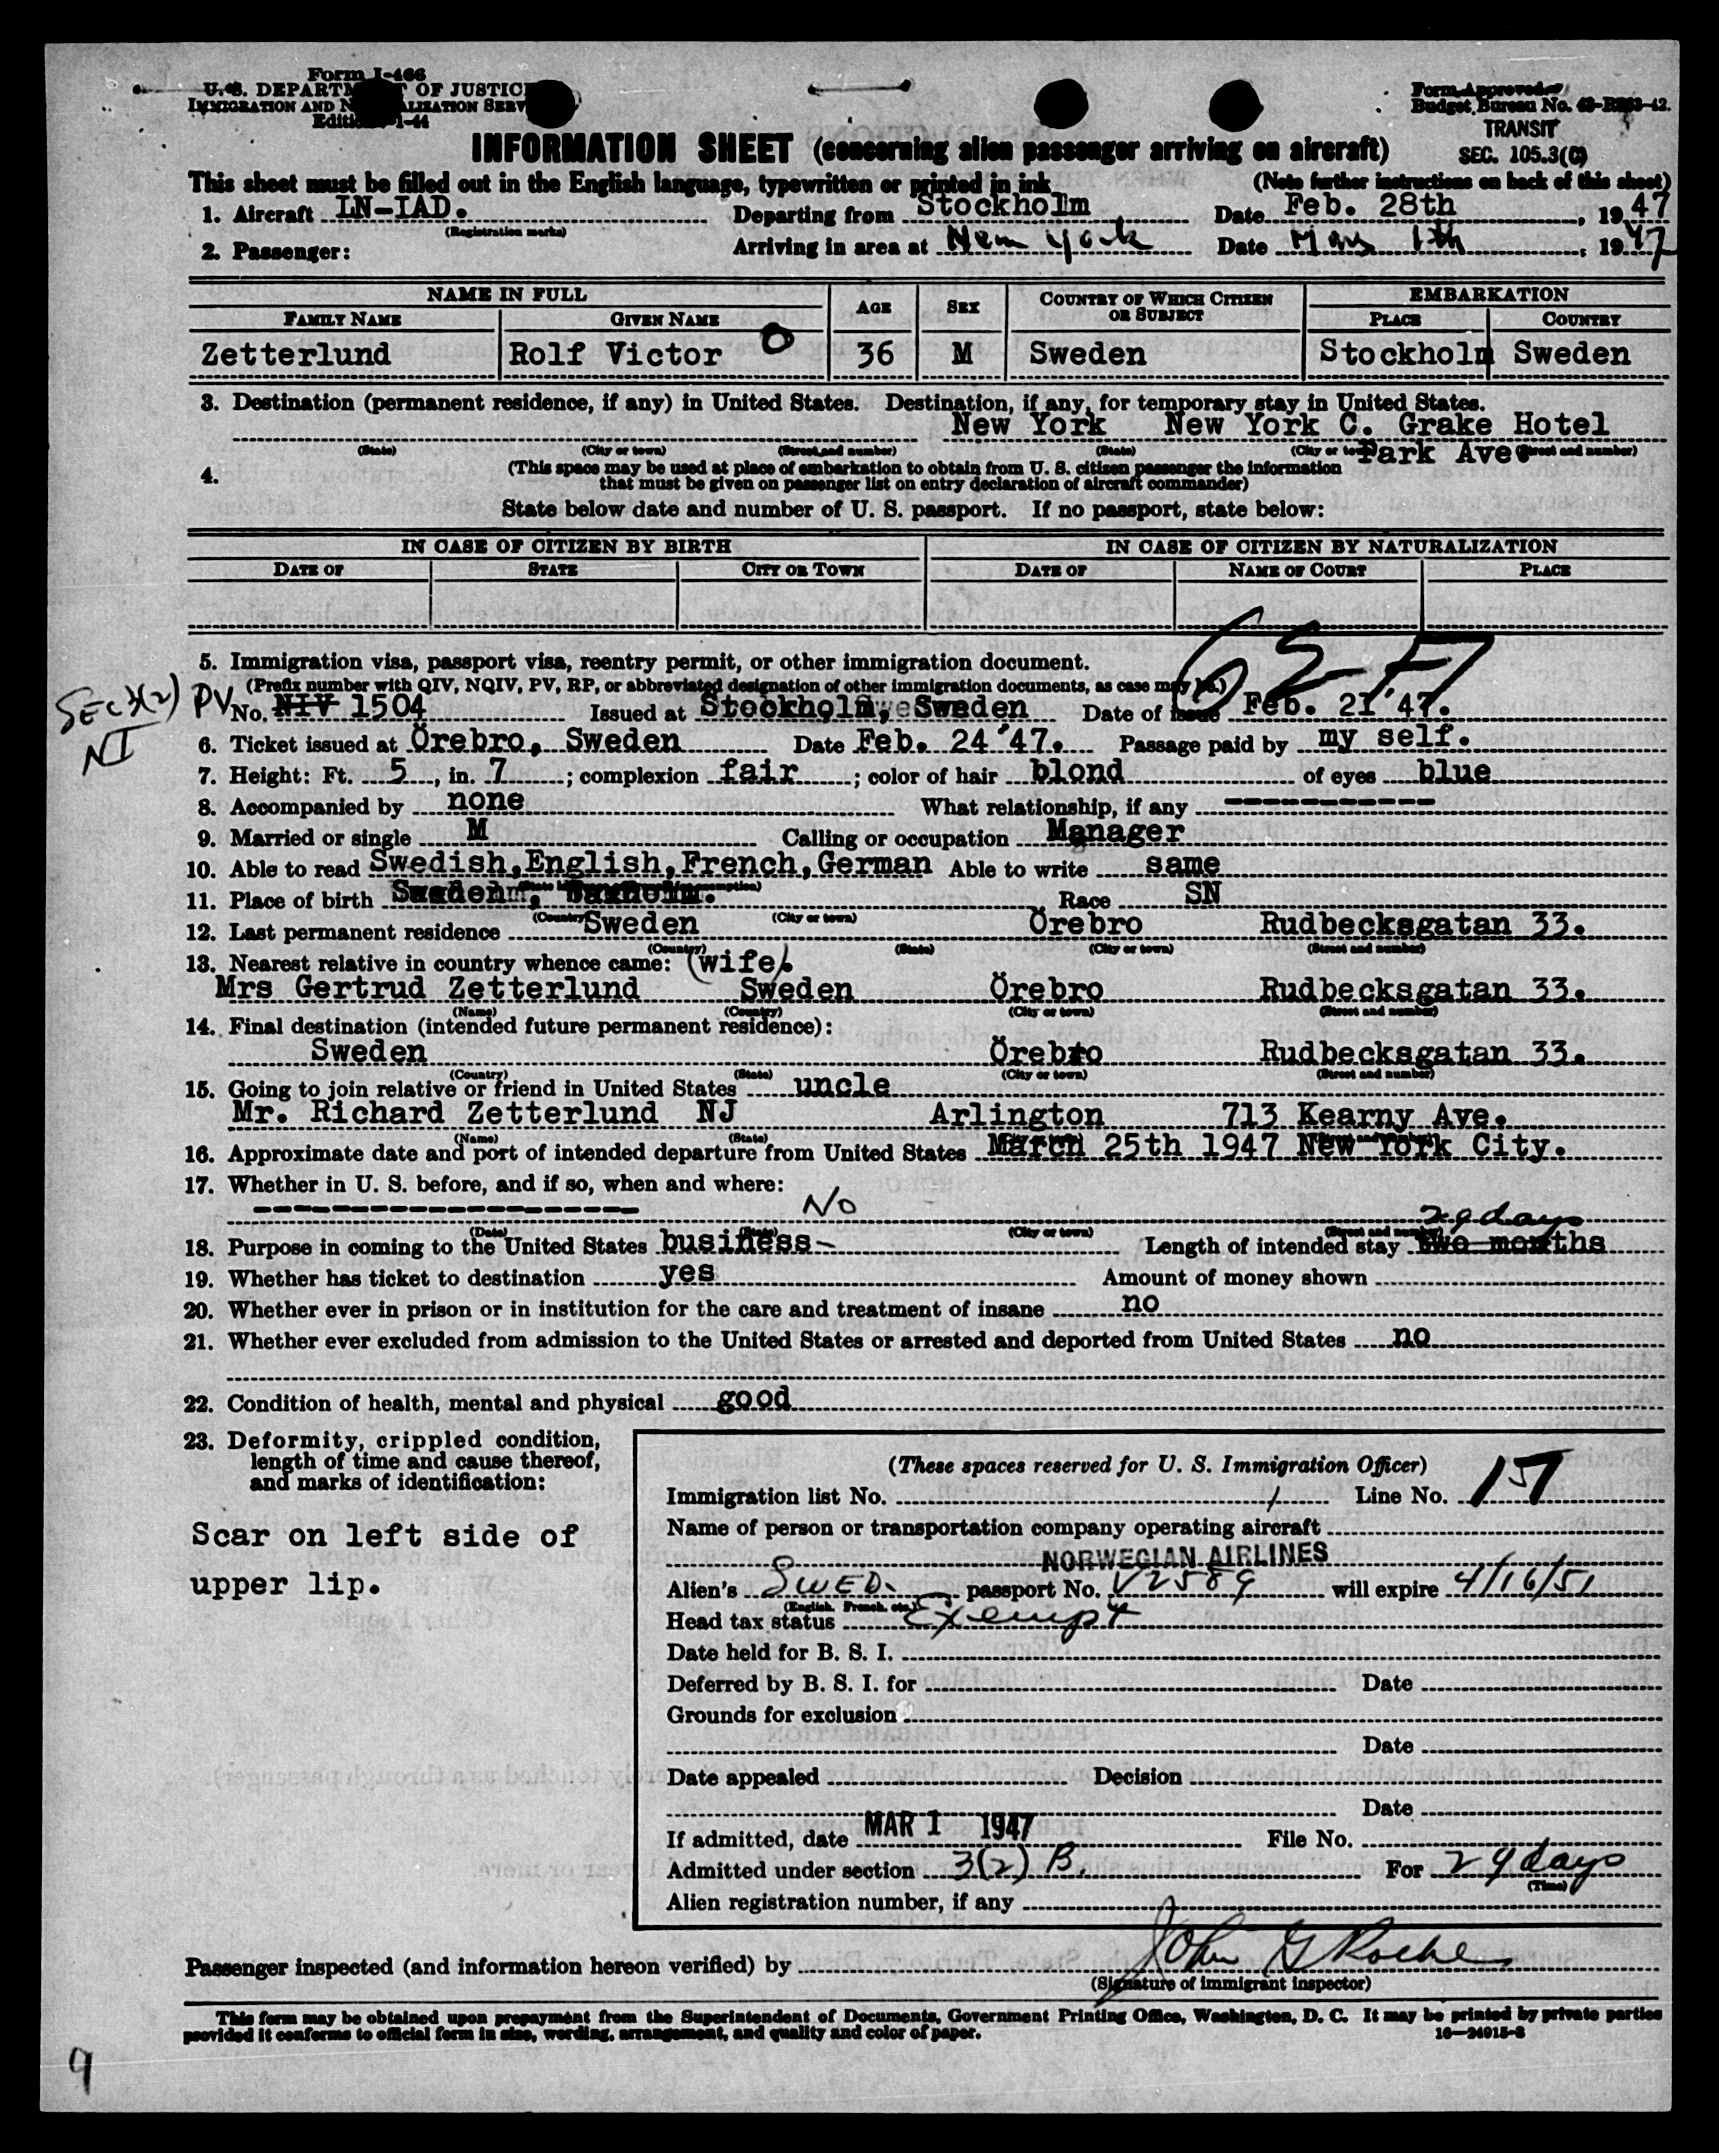 Form I-466
U. S. DEPARTMENT OF JUSTICE
IMMIGRATION AND NATURALIZATION SERV
Edition 1-44
Form Approved
Budget Bureau No. 43-R263-42.
TRANSIT
SEC. 105.3(C)
INFORMATION SHEET (concerning alien passenger arriving on aircraft)
This sheet must be filled out in the English language, typewritten or printed in ink (Note further instructions on back of this sheet)
1. Aircraft LN-IAD. Departing from Stockholm Date Feb. 28th, 1947
(Registration marks)
2. Passenger: Arriving in area at New York Date Mars 1th, 1947
NAME IN FULL AGE SEX COUNTRY OF WHICH CITIZEN OR SUBJECT EMBARKATION
FAMILY NAME GIVEN NAME PLACE COUNTRY
Zetterlund Rolf Victor O 36 M Sweden Stockholm Sweden
3. Destination (permanent residence, if any) in United States. Destination, if any, for temporary stay in United States.
New York New York C. Grake Hotel
(State) (City or town) (Street and number) (State) (City or town) Park Ave. (Street and number)
4. (This space may be used at place of embarkation to obtain from U. S. citizen passenger the information
that must be given on passenger list on entry declaration of aircraft commander)
State below date and number of U. S. passport. If no passport, state below:
IN CASE OF CITIZEN BY BIRTH IN CASE OF CITIZEN BY NATURALIZATION
DATE OF STATE CITY OR TOWN DATE OF NAME OF COURT PLACE
5. Immigration visa, passport visa, reentry permit, or other immigration document.
(Prefix number with QIV, NQIV, PV, RP, or abbreviated designation of other immigration documents, as case may be.)
SEC 3(2) PV No. NIV 1504 Issued at Stockholm, Sweden Date of issue Feb. 21 '47.
NI
6. Ticket issued at Örebro, Sweden Date Feb. 24 '47. Passage paid by my self.
7. Height: Ft. 5, in. 7; complexion fair; color of hair blond of eyes blue
8. Accompanied by none What relationship, if any ------------
9. Married or single M Calling or occupation Manager
10. Able to read Swedish, English, French, German Able to write same
11. Place of birth Race SN
(Country) (City or town)
12. Last permanent residence Sweden Örebro Rudbecksgatan 33.
(Country) (State) (City or town) (Street and number)
13. Nearest relative in country whence came: (wife).
Mrs Gertrud Zetterlund Sweden Örebro Rudbecksgatan 33.
(Name) (Country) (City or town) (Street and number)
14. Final destination (intended future permanent residence):
Sweden Örebro Rudbecksgatan 33.
(Country) (State) (City or town) (Street and number)
15. Going to join relative or friend in United States uncle
Mr. Richard Zetterlund NJ Arlington 713 Kearny Ave.
(Name) (State)
16. Approximate date and port of intended departure from United States March 25th 1947 New York City.
17. Whether in U. S. before, and if so, when and where:
-------------------- No
(Date) (State) (City or town) (Street and number)
29 days
18. Purpose in coming to the United States business- Length of intended stay two months
19. Whether has ticket to destination yes Amount of money shown
20. Whether ever in prison or in institution for the care and treatment of insane no
21. Whether ever excluded from admission to the United States or arrested and deported from United States no
22. Condition of health, mental and physical good
23. Deformity, crippled condition,
length of time and cause thereof,
and marks of identification:
Scar on left side of
upper lip.
(These spaces reserved for U. S. Immigration Officer)
Immigration list No. 1 Line No. 17
Name of person or transportation company operating aircraft
NORWEGIAN AIRLINES
Alien's SWED. passport No. V2589 will expire 4/16/51
(English, French, etc.)
Head tax status Exempt
Date held for B. S. I.
Deferred by B. S. I. for Date
Grounds for exclusion
Date
Date appealed Decision
Date
If admitted, date MAR 1 1947 File No.
Admitted under section 3(2) B. For 29 days
(Time)
Alien registration number, if any
Passenger inspected (and information hereon verified) by John G Roche
(Signature of immigrant inspector)
This form may be obtained upon prepayment from the Superintendent of Documents, Government Printing Office, Washington, D. C. It may be printed by private parties
provided it conforms to official form in size, wording, arrangement, and quality and color of paper. 16—24915-2
9